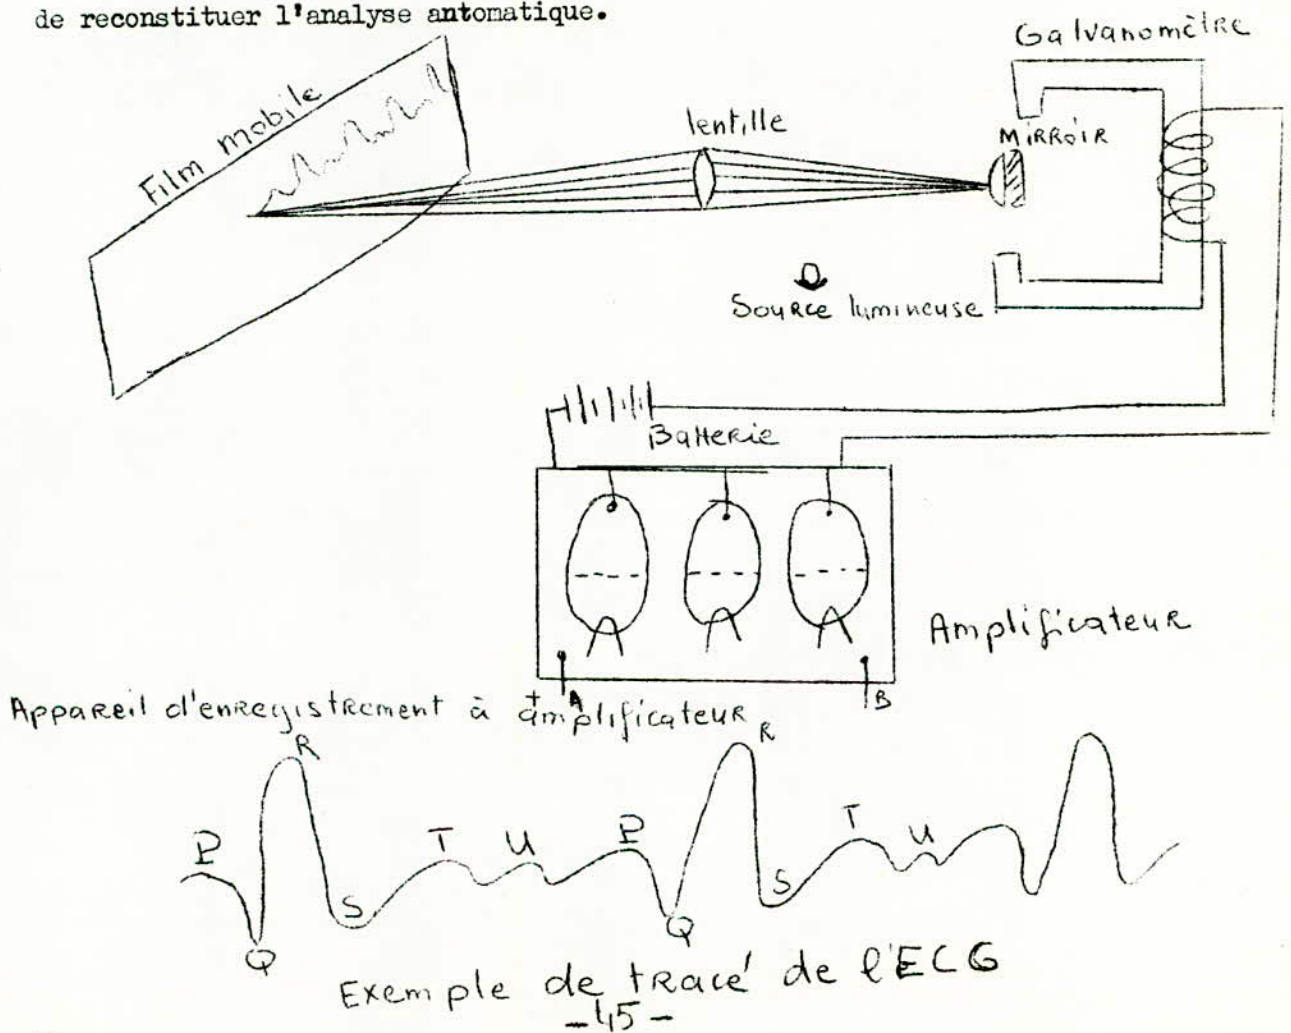 de reconstituer l'analyse antomatique.
Galvanomètre
Film mobile
lentille
MiRRoiR
Source lumineuse
Batterie
Amplificateur
+A
B
Appareil d'enregistrement à amplificateur
R
R
P
T
U
P
T
U
S
S
Q
Q
Exemple de tracé de l'ECG
-45-